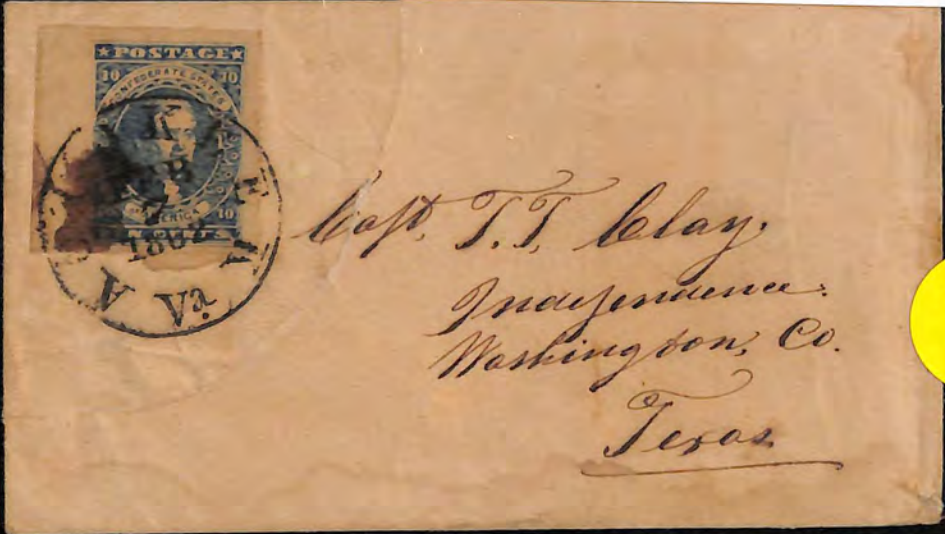 ★POSTAGE★
10 10
CONFEDERATE STATES
AMERICA
10
N CENTS
Va.
Capt. T. T. Clay.
Independence.
Washington, Co.
Texas